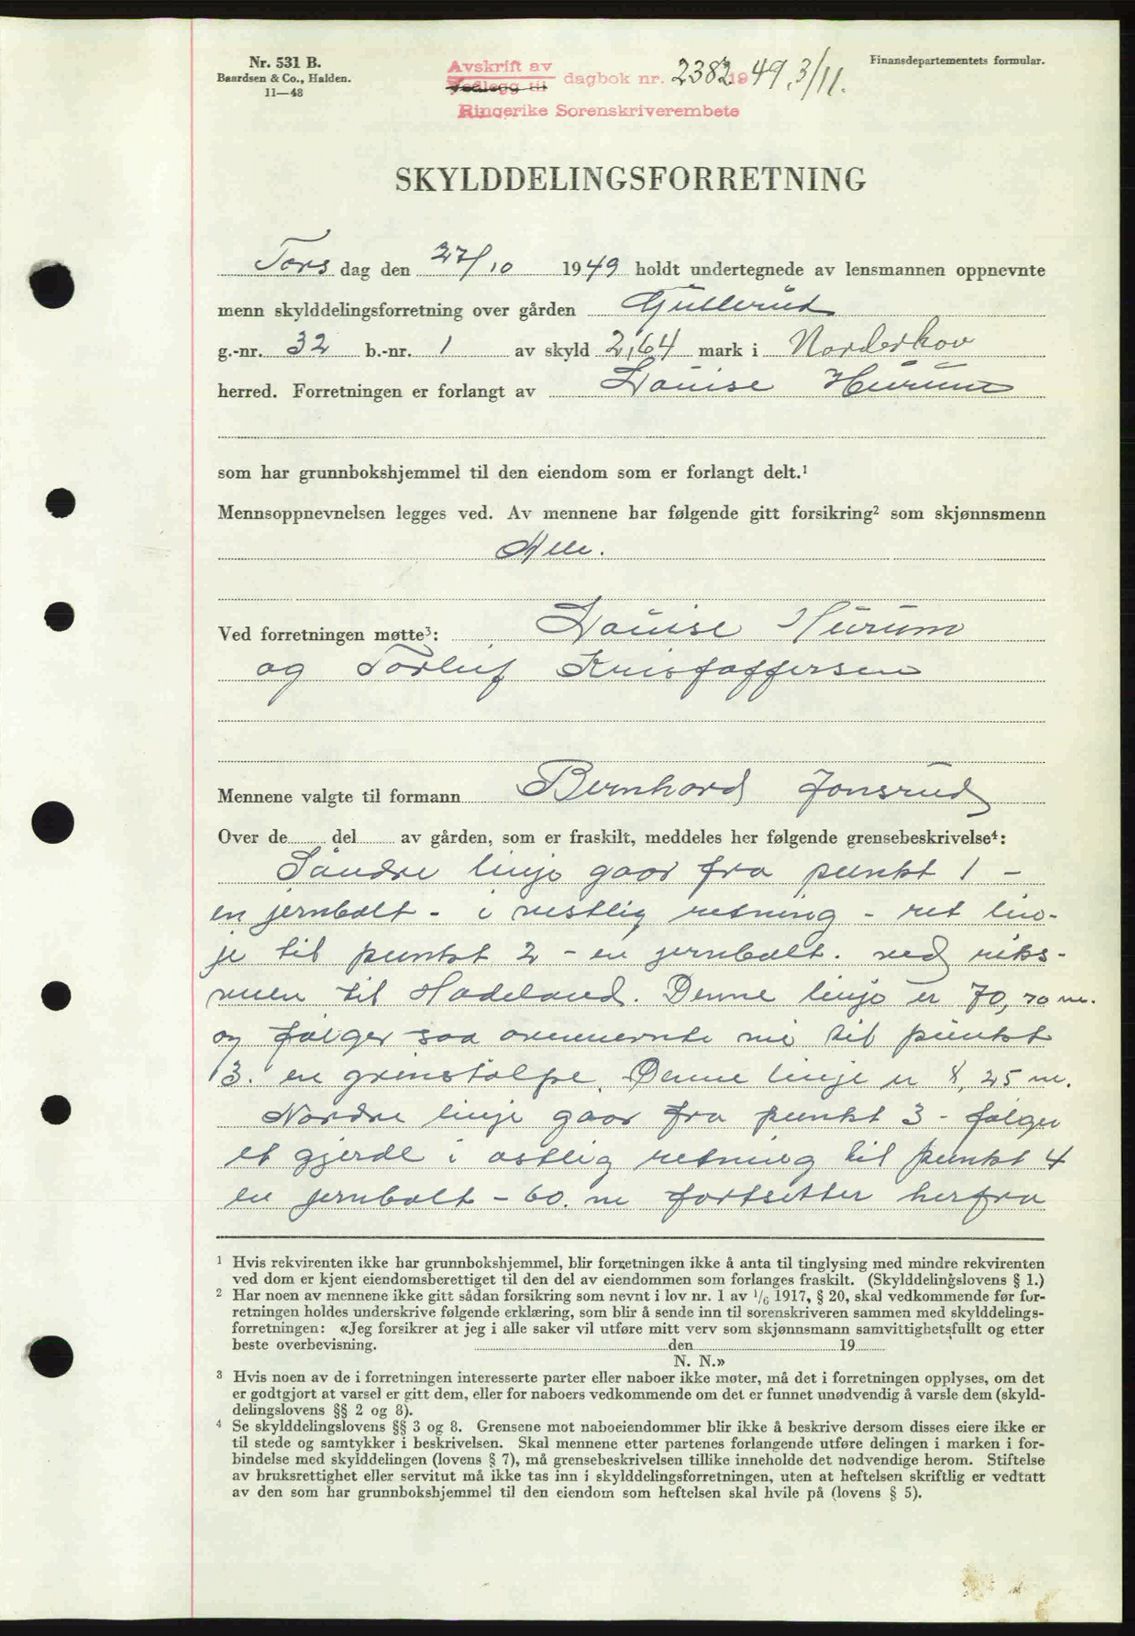 Nr. 531 B.
Baardsen & Co., Halden.
11—48
Finansdepartementets formular.
Avskrift av
Vedlegg til dagbok nr. 2382 1949, 3/11.
Ringerike Sorenskriverembete
SKYLDDELINGSFORRETNING
Tors dag den 27/10 1949 holdt undertegnede av lensmannen oppnevnte
menn skylddelingsforretning over gården Gullerud
g.-nr. 32 b.-nr. 1 av skyld 2,64 mark i Norderhov
herred. Forretningen er forlangt av Louise Hurum
som har grunnbokshjemmel til den eiendom som er forlangt delt.¹
Mennsoppnevnelsen legges ved. Av mennene har følgende gitt forsikring² som skjønnsmenn
Alle.
Ved forretningen møtte³: Louise Hurum
og Torleif Kristoffersen
Mennene valgte til formann Bernhard Jonsrud
Over de del av gården, som er fraskilt, meddeles her følgende grensebeskrivelse⁴:
Søndre linje gaar fra punkt 1 -
en jernbolt - i vestlig retning - ret lin-
je til punkt 2 - en jernbolt. ved riks-
veien til Hadeland. Denne linje er 70,70 m.
og følger saa ovennevnte vei til punkt
3. en grensstolpe. Denne linje er 8,25 m.
Nordre linje gaar fra punkt 3 - følger
et gjerde i østlig retning til punkt 4
en jernbolt - 60. m fortsetter herfra
¹ Hvis rekvirenten ikke har grunnbokshjemmel, blir forretningen ikke å anta til tinglysing med mindre rekvirenten
ved dom er kjent eiendomsberettiget til den del av eiendommen som forlanges fraskilt. (Skylddelingslovens § 1.)
² Har noen av mennene ikke gitt sådan forsikring som nevnt i lov nr. 1 av 1/6 1917, § 20, skal vedkommende før for-
retningen holdes underskrive følgende erklæring, som blir å sende inn til sorenskriveren sammen med skylddelings-
forretningen: «Jeg forsikrer at jeg i alle saker vil utføre mitt verv som skjønnsmann samvittighetsfullt og etter
beste overbevisning. den 19
N. N.»
³ Hvis noen av de i forretningen interesserte parter eller naboer ikke møter, må det i forretningen opplyses, om det
er godtgjort at varsel er gitt dem, eller for naboers vedkommende om det er funnet unødvendig å varsle dem (skyld-
delingslovens §§ 2 og 8).
⁴ Se skylddelingslovens §§ 3 og 8. Grensene mot naboeiendommer blir ikke å beskrive dersom disses eiere ikke er
til stede og samtykker i beskrivelsen. Skal mennene etter partenes forlangende utføre delingen i marken i for-
bindelse med skylddelingen (lovens § 7), må grensebeskrivelsen tillike inneholde det nødvendige herom. Stiftelse
av bruksrettighet eller servitut må ikke tas inn i skylddelingsforretningen, uten at heftelsen skriftlig er vedtatt
av den som har grunnbokshjemmel til den eiendom som heftelsen skal hvile på (lovens § 5).